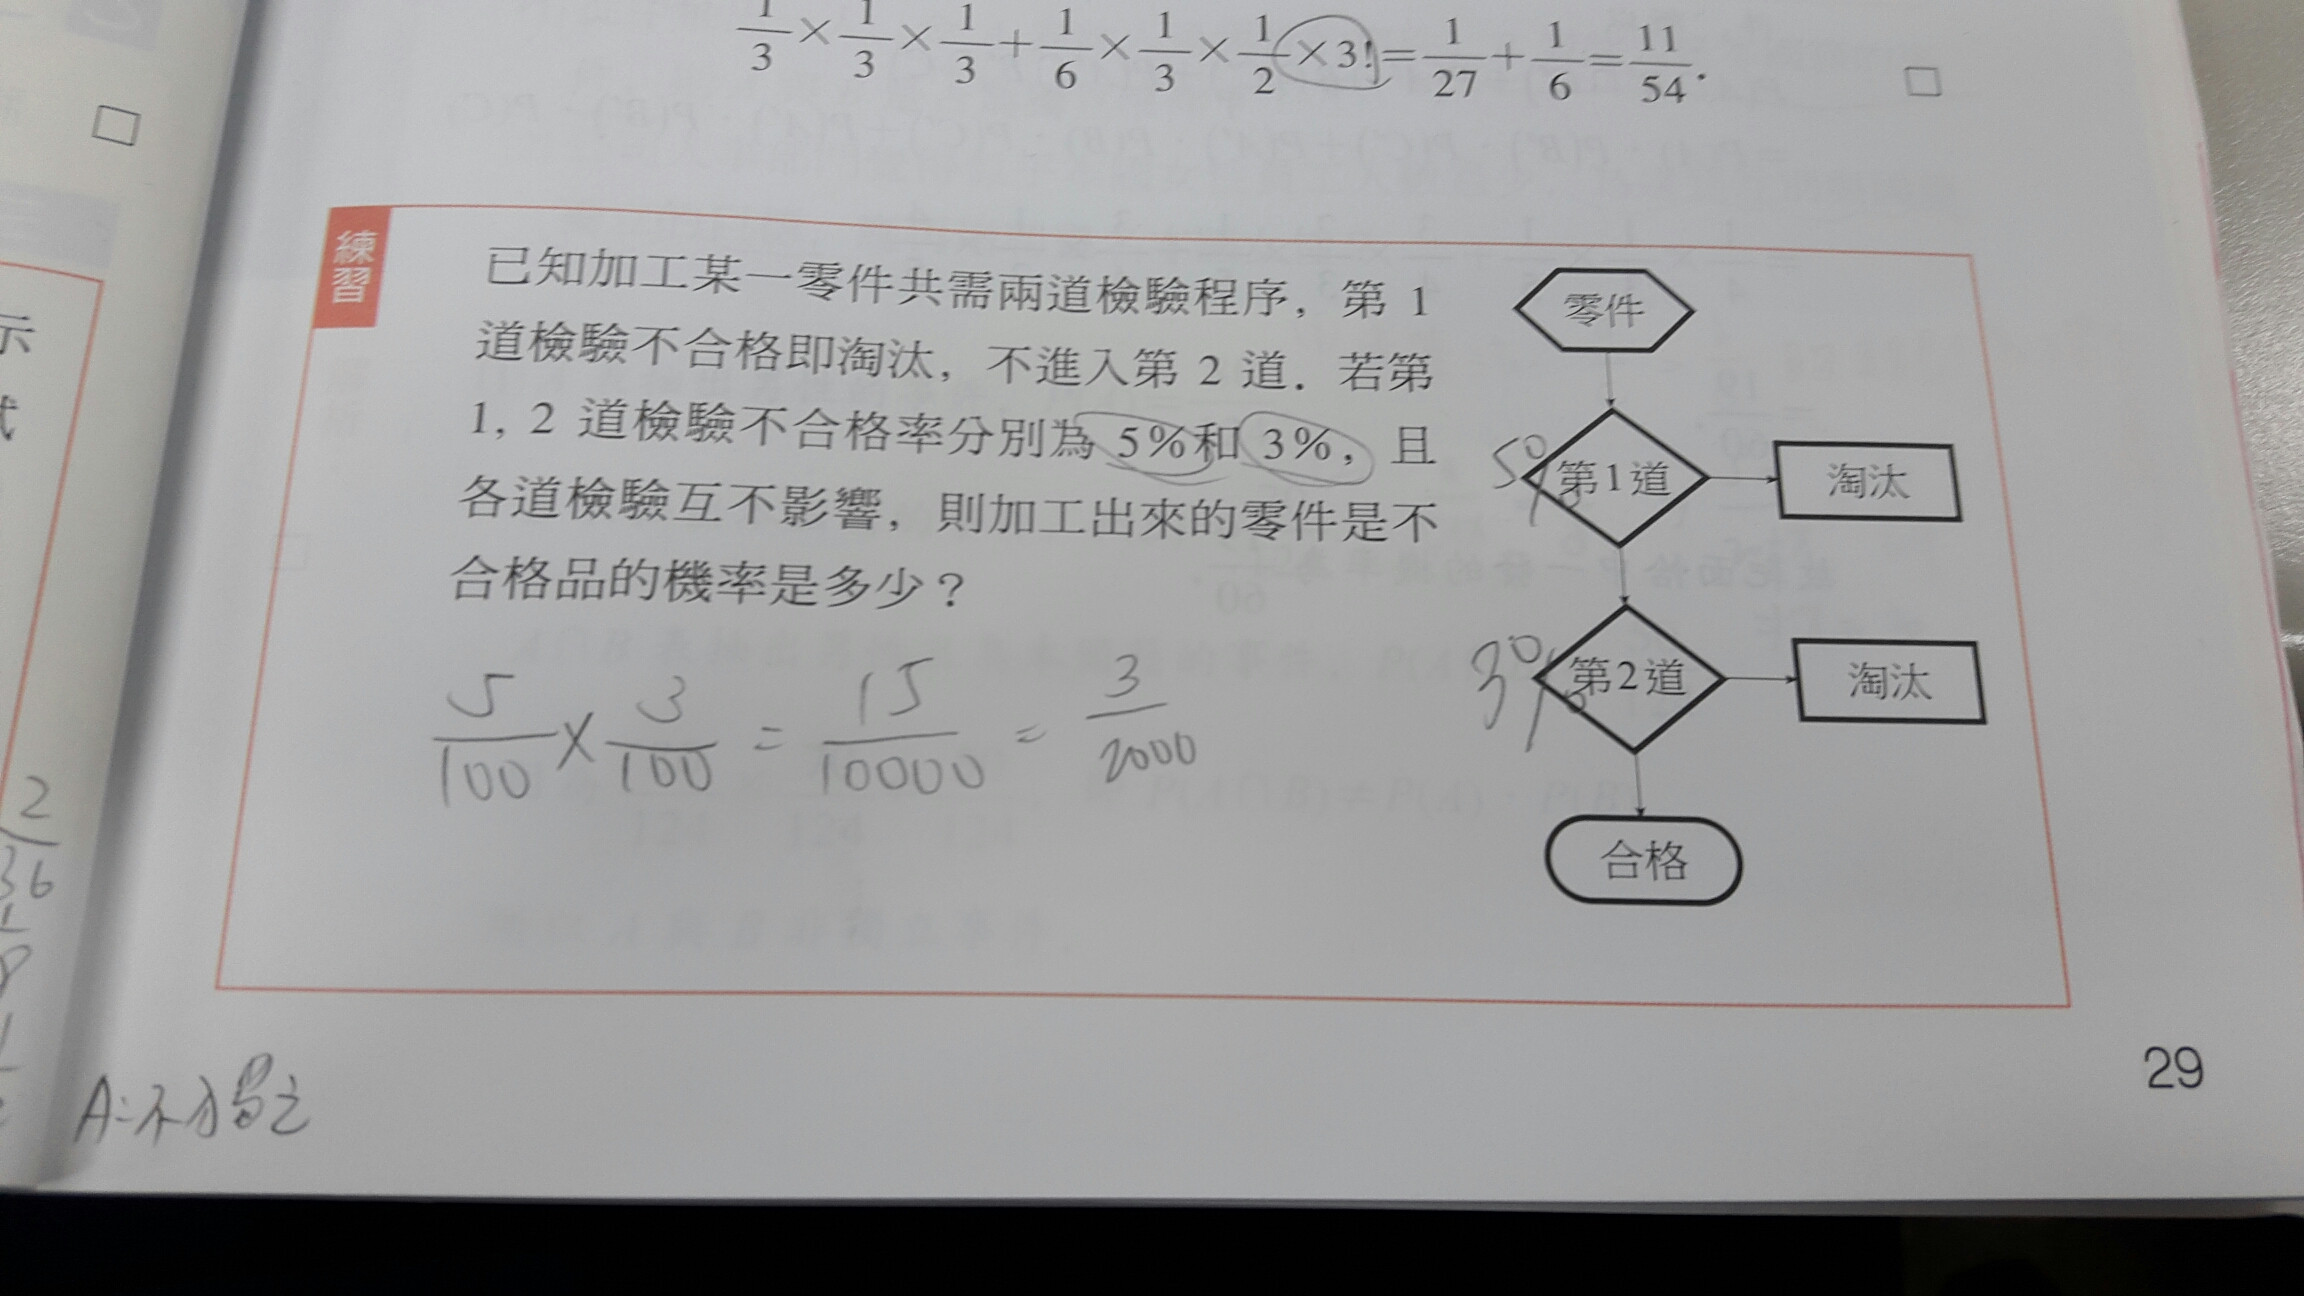 1/3×1/3×1/3+1/6×1/3×1/2×3!=1/27+1/6=11/54.
練習
已知加工某一零件共需兩道檢驗程序，第 1
道檢驗不合格即淘汰，不進入第 2 道．若第
1, 2 道檢驗不合格率分別為 5%和 3%，且
各道檢驗互不影響，則加工出來的零件是不
合格品的機率是多少？
零件
5%
第1道
淘汰
3%
第2道
淘汰
合格
5/100 × 3/100 = 15/10000 = 3/2000
示
式
2
36
29